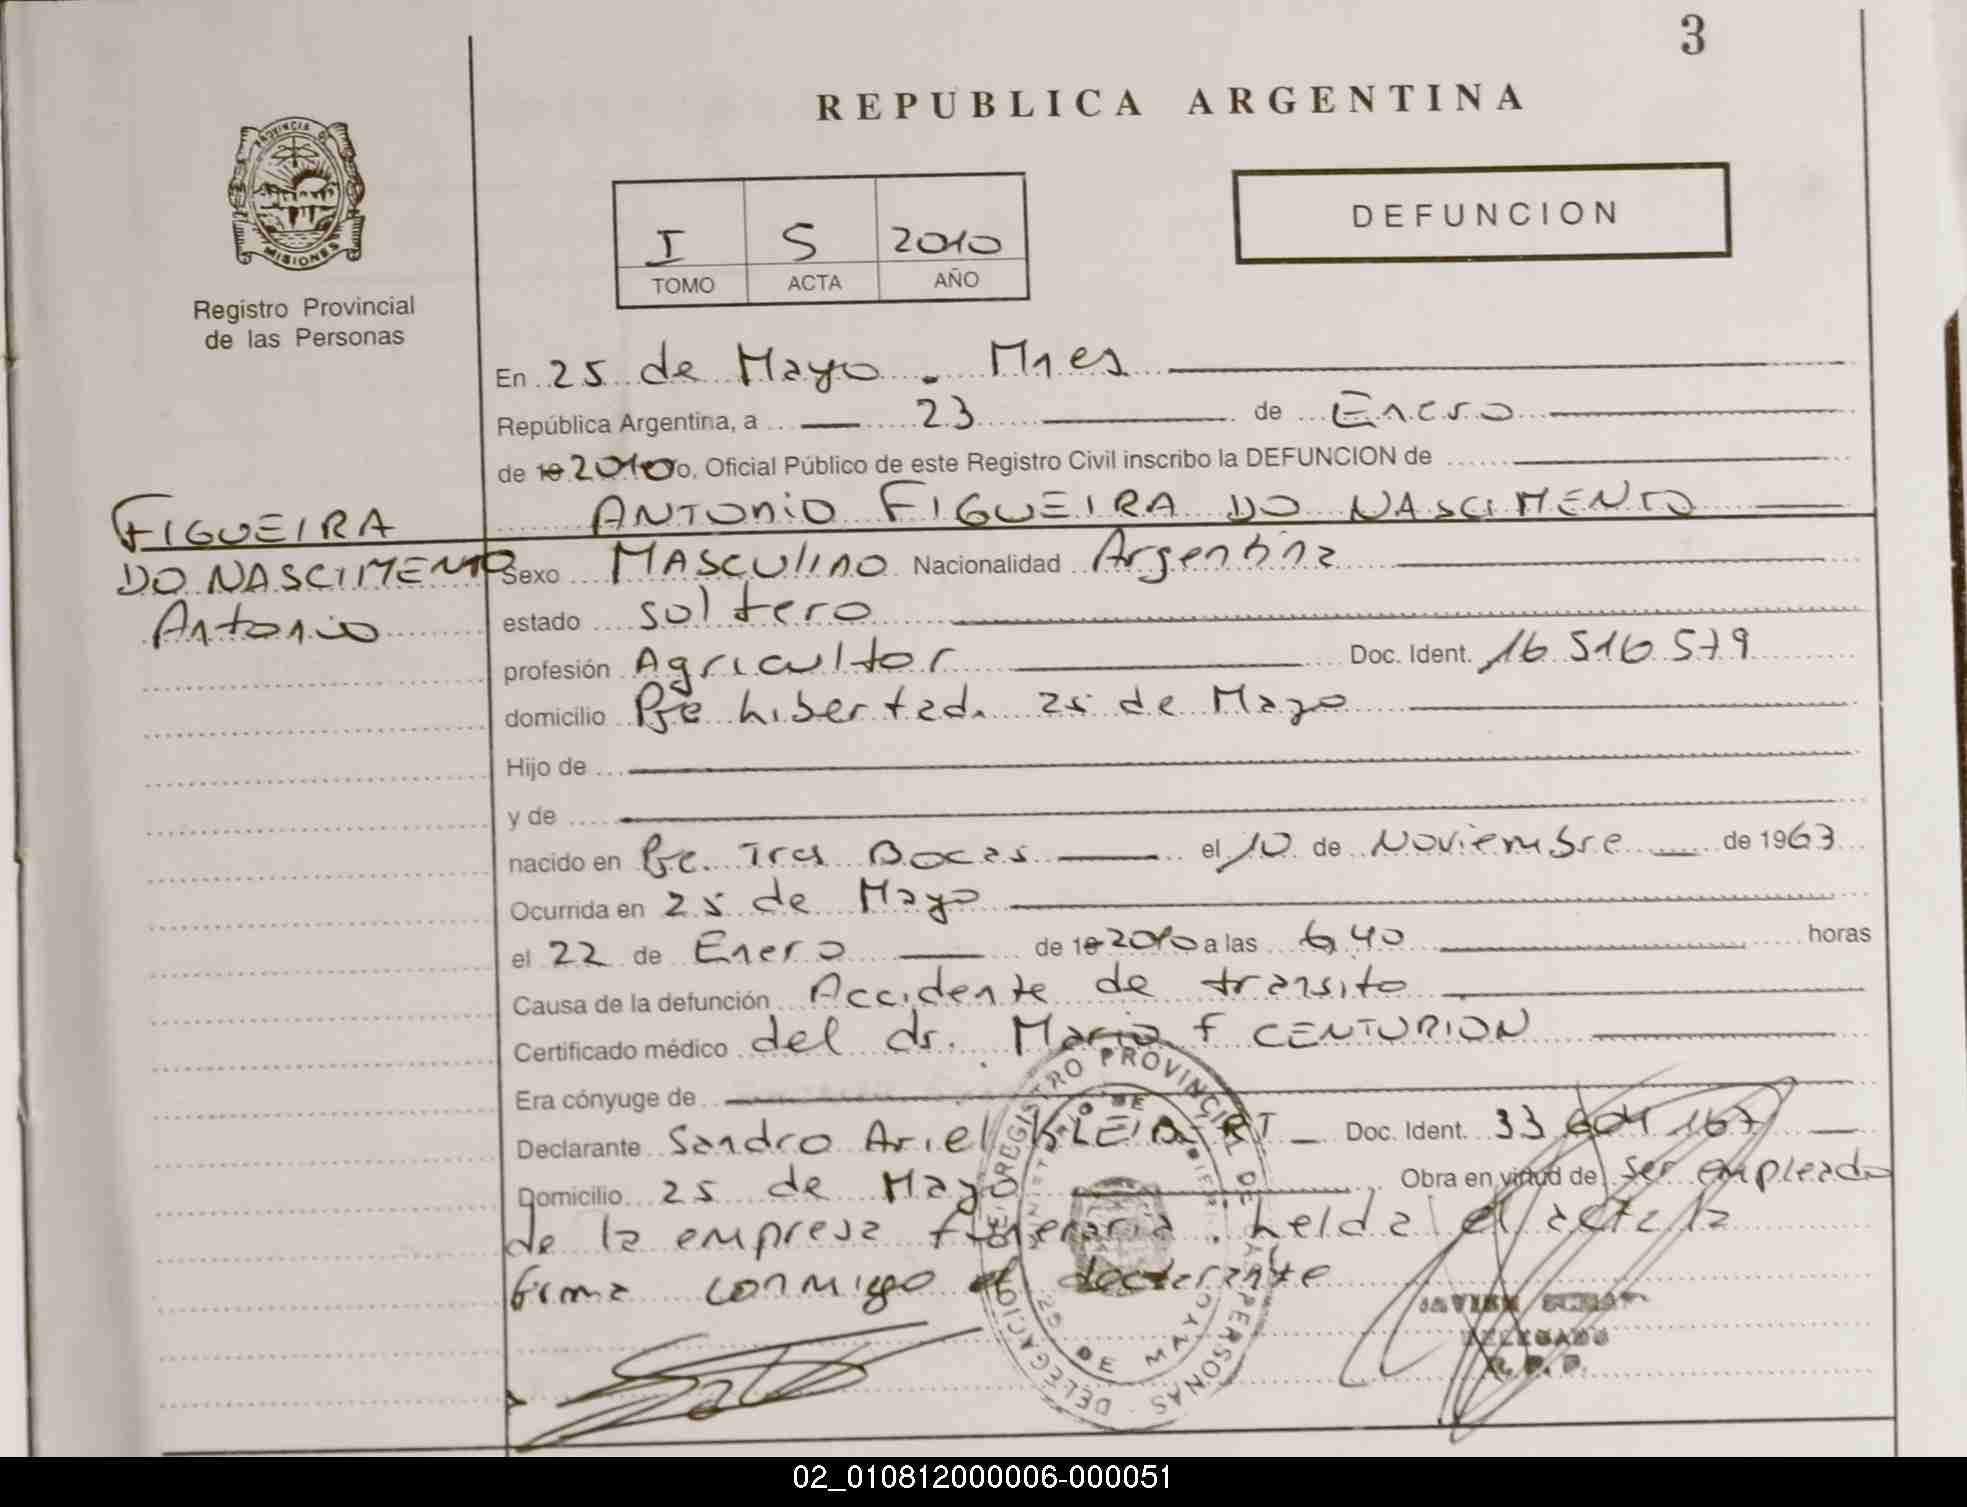 3
REPUBLICA ARGENTINA
PROVINCIA DE
MISIONES
Registro Provincial
de las Personas
I S 2010
TOMO ACTA AÑO
DEFUNCION
En 25 de Mayo - Mnes
República Argentina, a 23 de Enero
de 19 2010 yo, Oficial Público de este Registro Civil inscribo la DEFUNCION de
ANTONIO FIGUEIRA DO NASCIMENTO
FIGUEIRA
DO NASCIMENTO
Antonio
Sexo MASCULINO Nacionalidad Argentina
estado soltero
profesión Agricultor Doc. Ident. 16 516 579
domicilio Pje Libertad. 25 de Mayo
Hijo de
y de
nacido en Pje. Tres Bocas el 10 de Noviembre de 1963
Ocurrida en 25 de Mayo
el 22 de Enero de 19 2010 a las 6,40 horas
Causa de la defunción Accidente de transito
Certificado médico del dr. Mario F CENTURION
Era cónyuge de
Declarante Sandro Ariel KLEIBERT Doc. Ident. 33 604 167
Domicilio 25 de Mayo Obra en virtud de ser empleado
de la empresa funeraria. Leida el acta la
firma conmigo el declarante
REGISTRO PROVINCIAL DE LAS PERSONAS
DELEGACION
25 DE MAYO
DELEGADO
02_010812000006-000051